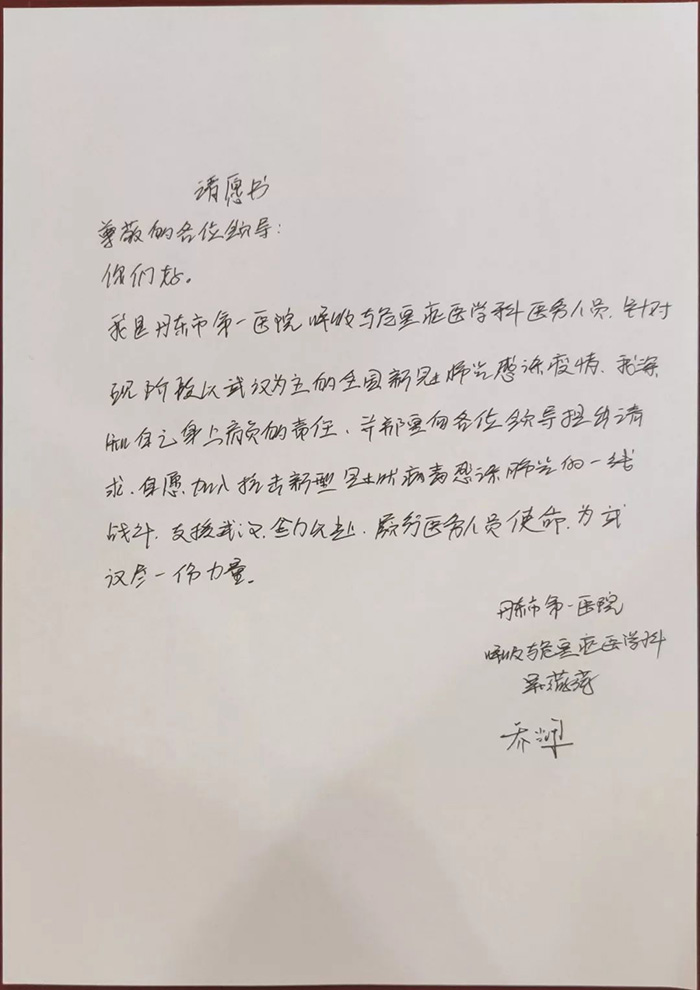 请愿书
尊敬的各位领导:
你们好。
我是丹东市第一医院呼吸与危重症医学科医务人员,针对
现阶段以武汉为主的全国新冠肺炎感染疫情、我深
知自己身上肩负的责任、并郑重向各位领导提出请
求,自愿加入抗击新型冠状病毒感染肺炎的一线
战斗,支援武汉,全力以赴,履行医务人员使命,为武
汉尽一份力量。
丹东市第一医院
呼吸与危重症医学科